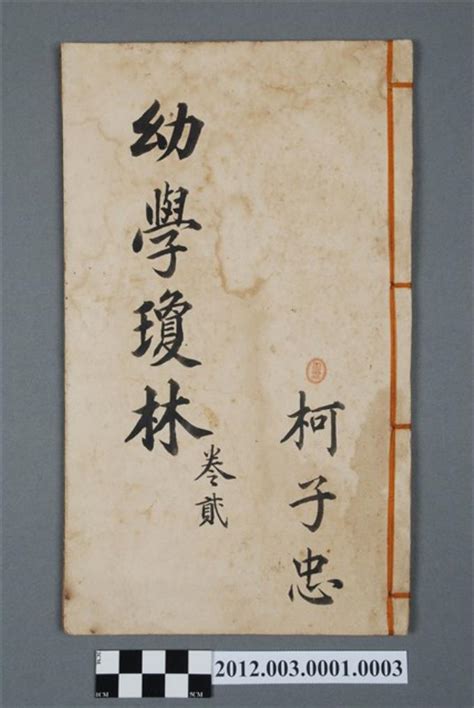 幼學瓊林
卷貳
柯子忠
2012.003.0001.0003